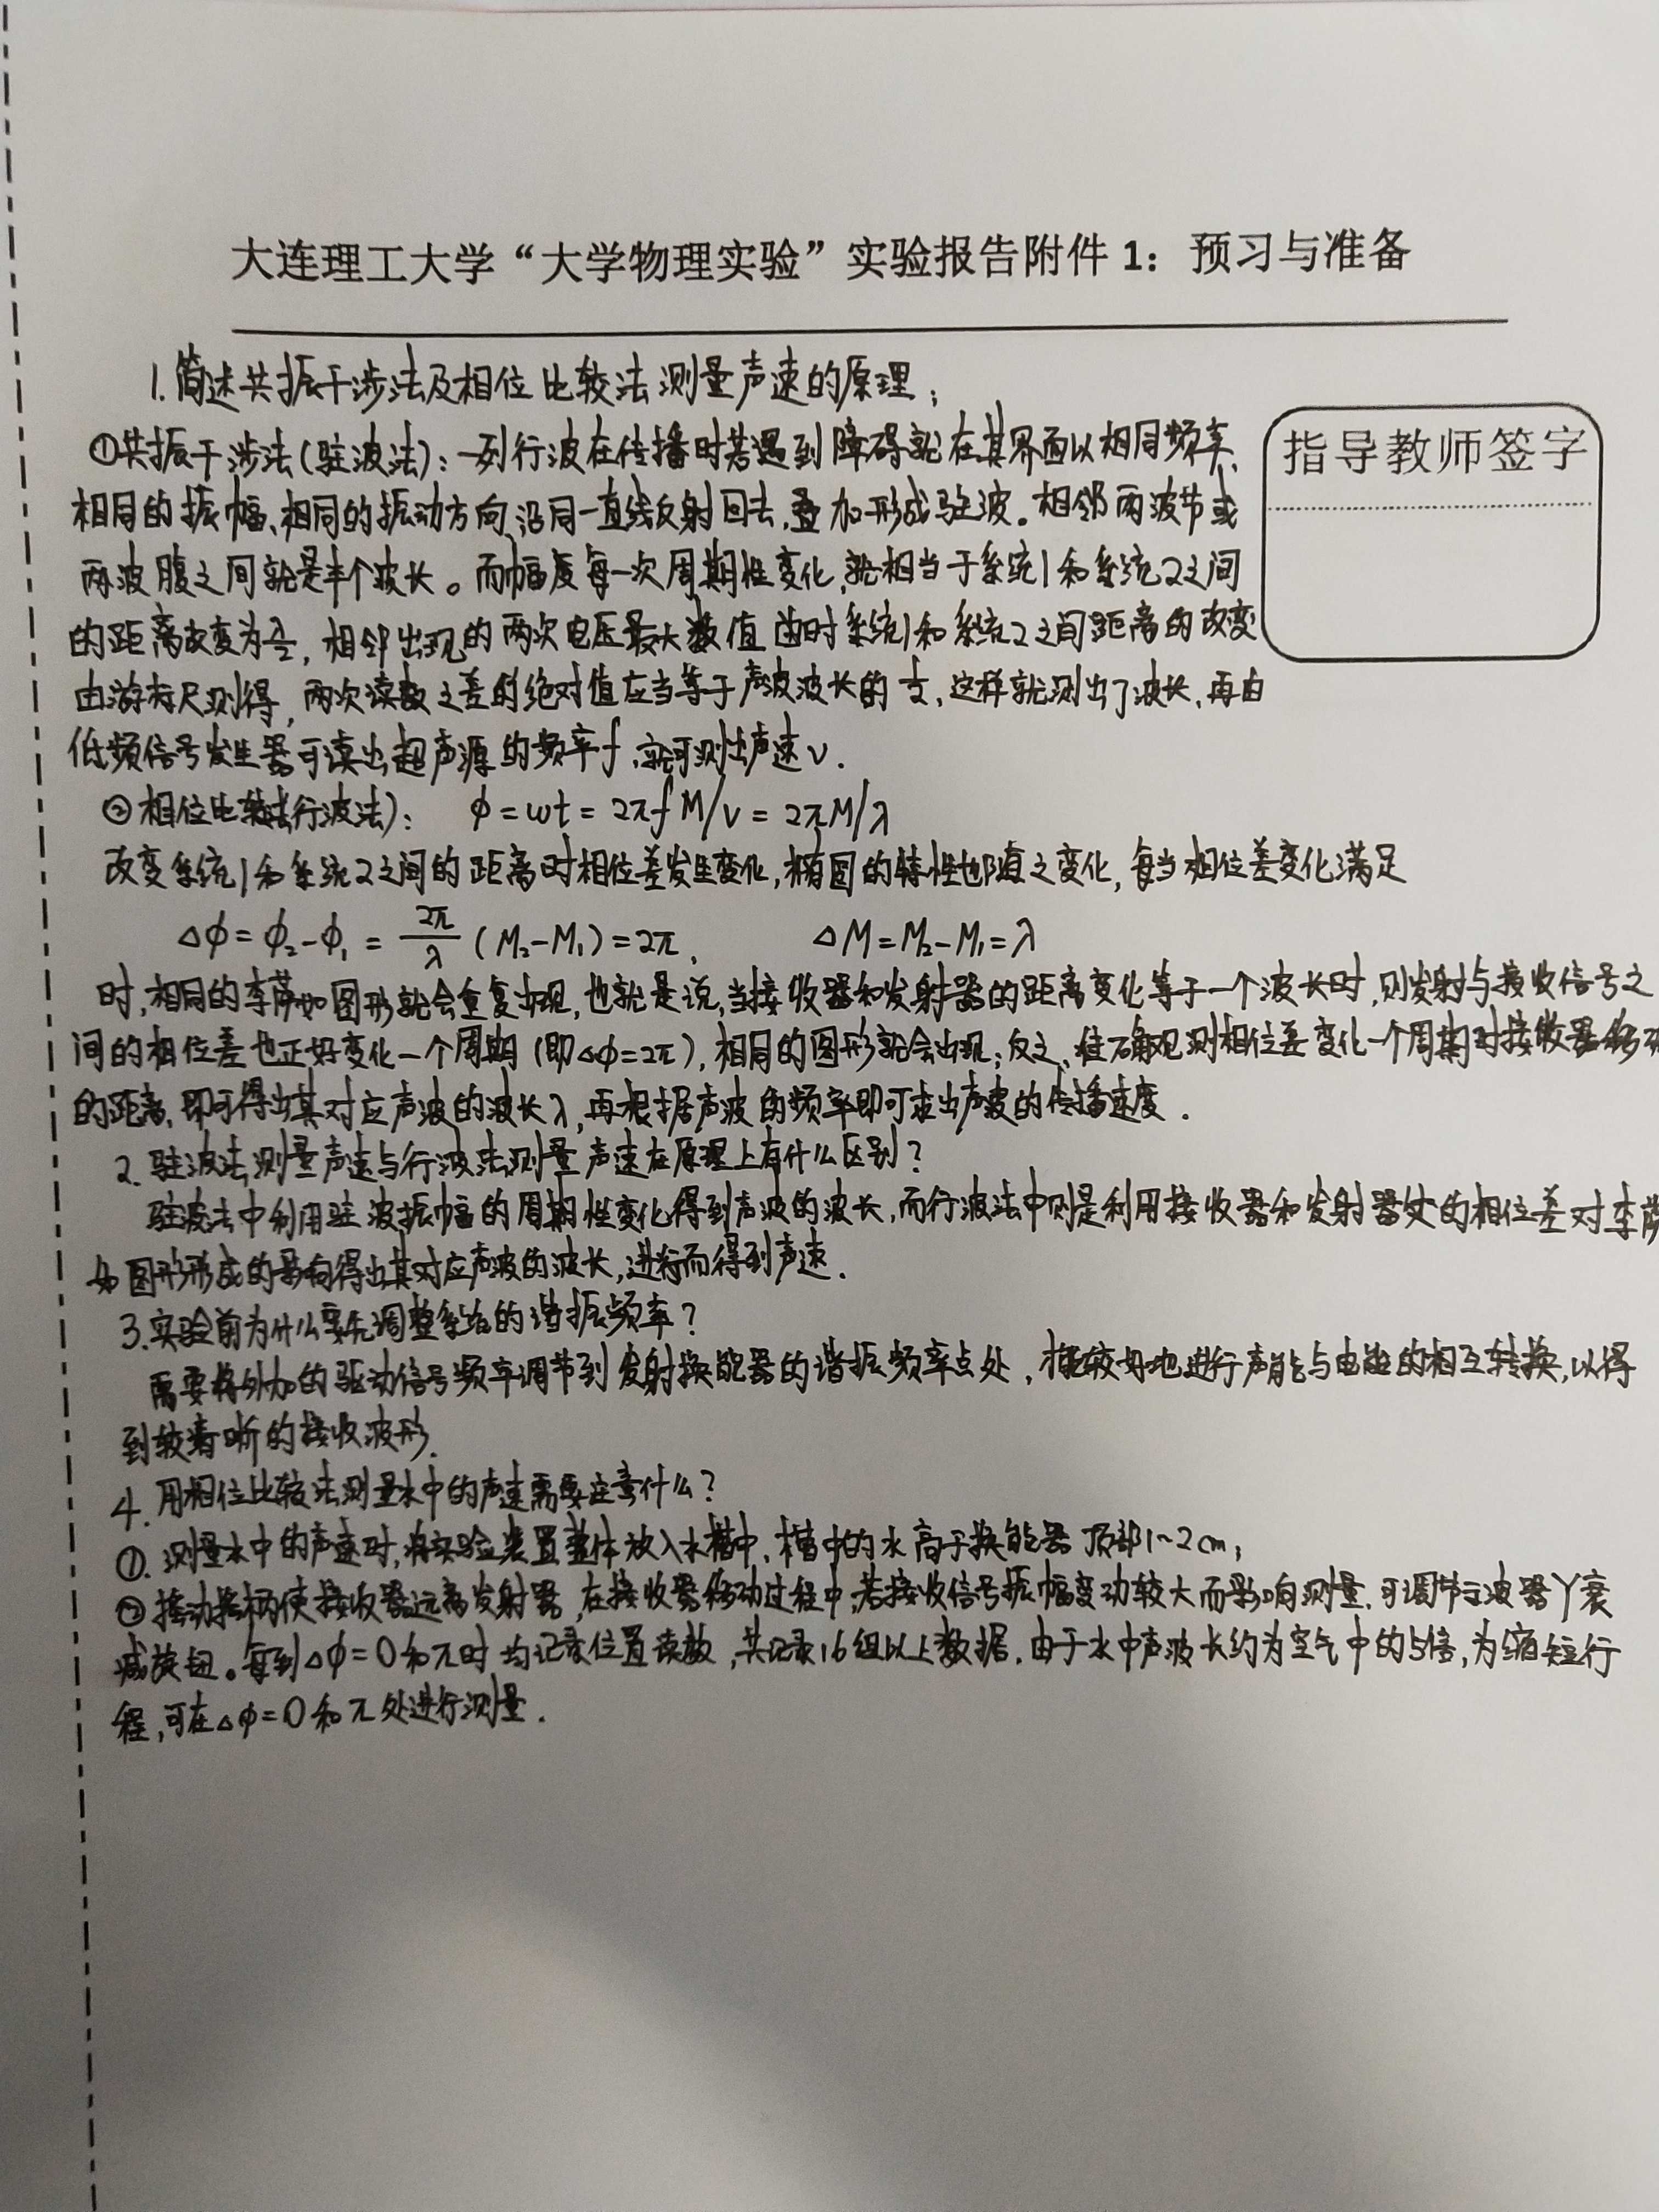 大连理工大学“大学物理实验”实验报告附件1：预习与准备
1.简述共振干涉法及相位比较法测量声速的原理；
指导教师签字
①共振干涉法(驻波法)：一列行波在传播时若遇到障碍就在其界面以相同频率、
相同的振幅、相同的振动方向,沿同一直线反射回去,叠加形成驻波。相邻两波节或
两波腹之间就是半个波长。而幅度每一次周期性变化,就相当于系统1和系统2之间
的距离改变为λ/2,相邻出现的两次电压最大数值 时系统1和系统2之间距离的改变
由游标尺测得,两次读数之差的绝对值应当等于声波波长的½,这样就测出了波长,再由
低频信号发生器可读出超声源的频率f,就可测出声速v.
②相位比较法(行波法)： ϕ=ωt=2πfM/v=2πM/λ
改变系统1和系统2之间的距离时相位差发生变化,椭圆的特性也随之变化,每当相位差变化满足
Δϕ=ϕ₂-ϕ₁=2π/λ(M₂-M₁)=2π, ΔM=M₂-M₁=λ
时,相同的李萨如图形就会重复出现,也就是说,当接收器和发射器的距离变化等于一个波长时,则发射与接收信号之
间的相位差也正好变化一个周期(即Δϕ=2π),相同的图形就会出现;反之,准确观测相位差变化一个周期时接收器移动
的距离,即可得出其对应声波的波长λ,再根据声波的频率即可求出声波的传播速度.
2.驻波法测量声速与行波法测量声速在原理上有什么区别?
驻波法中利用驻波振幅的周期性变化得到声波的波长,而行波法中则是利用接收器和发射器处的相位差对李萨
如图形形成的影响得出其对应声波的波长,进而得到声速.
3.实验前为什么要先调整系统的谐振频率?
需要将外加的驱动信号频率调节到发射换能器的谐振频率点处,才能较好地进行声能与电能的相互转换,以得
到较清晰的接收波形.
4.用相位比较法测量水中的声速需要注意什么?
①.测量水中的声速时,将实验装置整体放入水槽中,槽中的水高于换能器顶部1~2cm;
②摇动摇柄使接收器远离发射器,在接收器移动过程中,若接收信号振幅变动较大而影响测量,可调节示波器Y衰
减旋钮。每到Δϕ=0和π时均记录位置读数,共记录16组以上数据.由于水中声波长约为空气中的5倍,为缩短行
程,可在Δϕ=0和π处进行测量.